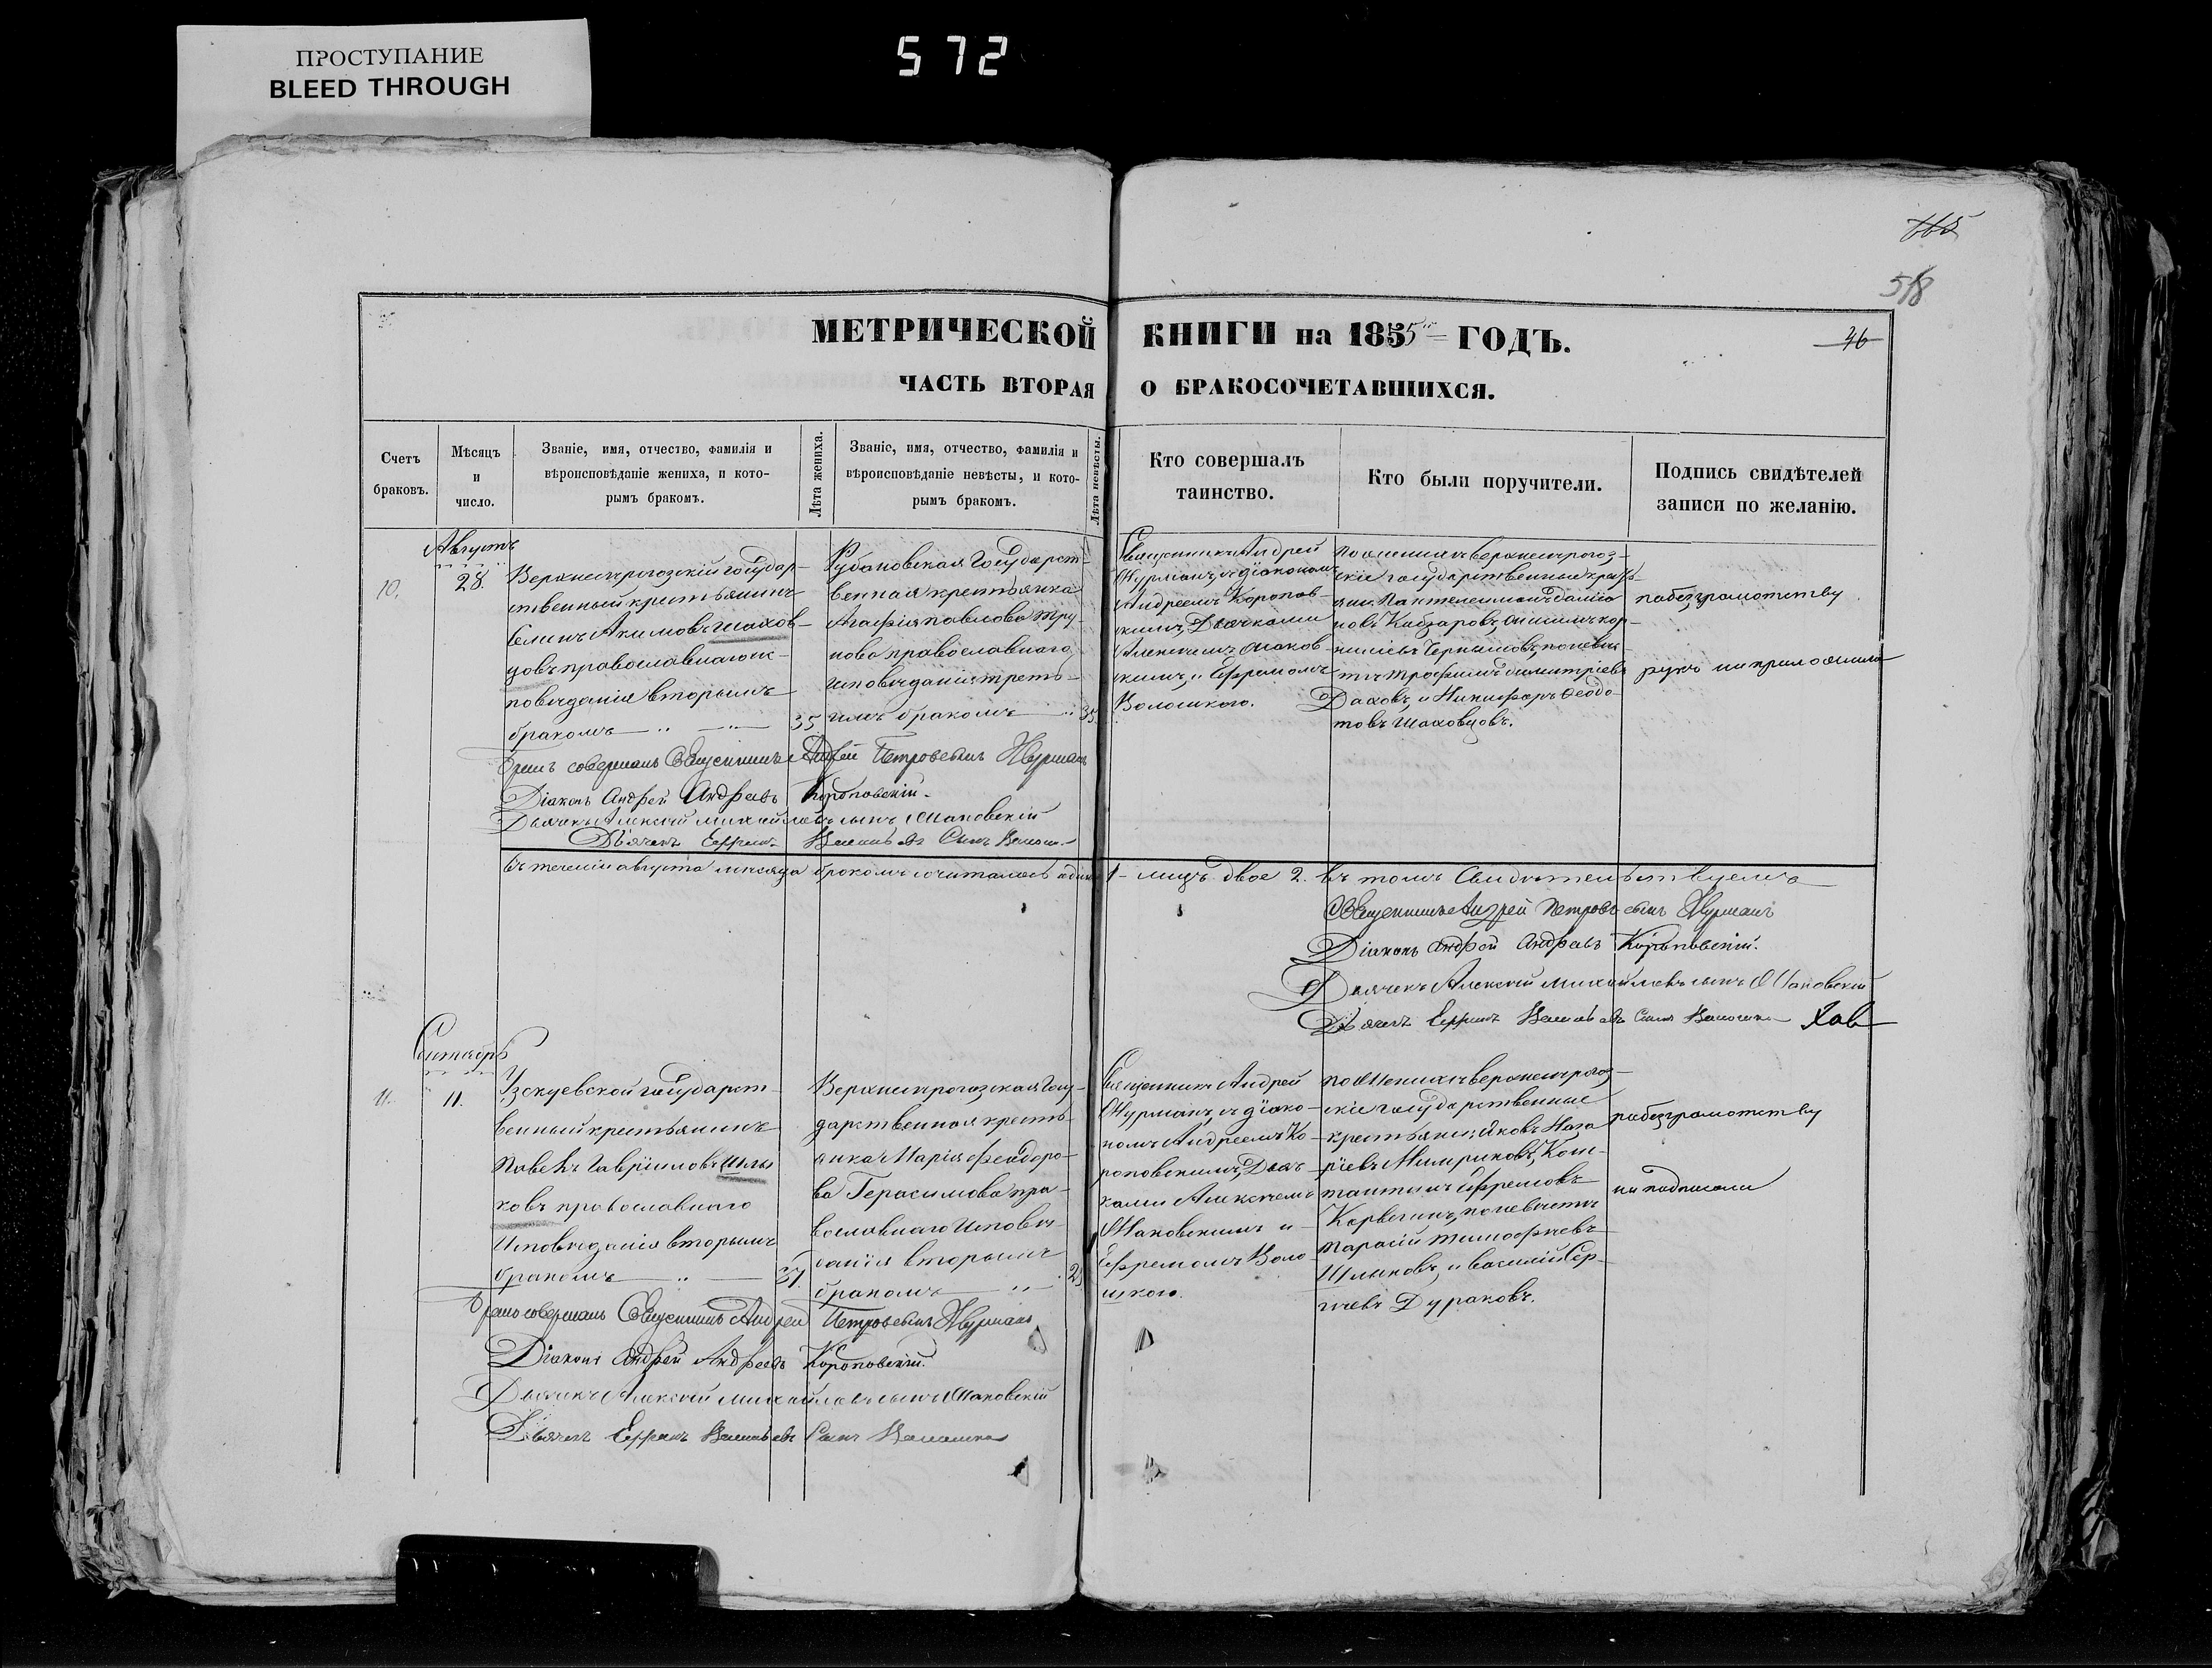 ПРОСТУПАНИЕ
BLEED THROUGH
572
518
36
МЕТРИЧЕСКОЙ КНИГИ на 1855 ГОДЪ.
ЧАСТЬ ВТОРАЯ О БРАКОСОЧЕТАВШИХСЯ.
Счетъ браковъ.
Мѣсяцъ и число.
Званіе, имя, отчество, фамилія и
вѣроисповѣданіе жениха, и кото-
рымъ бракомъ.
Лѣта жениха.
Званіе, имя, отчество, фамилія и
вѣроисповѣданіе невѣсты, и кото-
рымъ бракомъ.
Лѣта невѣсты.
Кто совершалъ
таинство.
Кто были поручители.
Подпись свидѣтелей
записи по желанію.
Августъ
10.
28.
Верхнерогозскій государ-
ственный крестьянинъ
Акимовъ Шахов-
цовъ православнаго ис-
повѣданія вторымъ
бракомъ
35
Рубановская государст-
венная крестьянка
Агафія Павлова Тру-
нова православнаго
исповѣданія треть-
имъ бракомъ
35
Священникъ Андрей
Нурманъ, съ діакономъ
Андреемъ Коропов-
скимъ, Дьячками
Алексіемъ Маков-
скимъ, и Ефремомъ
Волошкого.
по женихѣ верхнерогоз-
скіе государственные кресть-
яне Пантелеимонъ
нилъ Чернышовъ, по невѣс-
тѣ Трофимъ Димитріевъ
Даховъ, и Никифоръ Ѳеодо-
товъ Шаховцовъ.
по безграмотству
рукъ не приложили
Бракъ совершалъ Священникъ Андрей Петровъ сынъ Нурманъ
Діаконъ Андрей Андреевъ Короповскій
Дьячекъ Алексій Михайловъ сынъ Маковскій
Дьячекъ Ефремъ Васильевъ Сынъ Волошка
въ теченіи августа мѣсяца бракомъ сочиталось одинъ 1 - лицъ двое 2. въ томъ Свидѣтельствуемъ
Священникъ Андрей Петровъ сынъ Нурманъ
Діаконъ Андрей Андреевъ Короповскій.
Дьячекъ Алексій Михайловъ сынъ Маковскій
Дьячекъ Ефремъ Васильевъ Сынъ Волошка
Сентябрь
11.
11.
Узкуевской государст-
венный крестьянинъ
Павелъ Гавриловъ Шлы-
ковъ православнаго
исповѣданія вторымъ
бракомъ
37.
Верхнерогозская госу-
дарственная кресть-
янка Марія Феодоро-
ва Герасимова пра-
вославнаго исповѣ-
данія вторымъ
бракомъ
Священникъ Андрей
Нурманъ, съ діако-
номъ Андреемъ Ко-
роповскимъ, Дьяч-
ками Алексіемъ
Маковскимъ и
Ефремомъ Воло-
шкого.
по женихѣ верхнерогоз-
скіе государственные
крестьяне; Яковъ Наза-
ріевъ Конс-
тантинъ Ефремовъ
по невѣстѣ
Тарасій Тимофѣевъ
Шлыковъ, и Василій Сер-
гіевъ Дураковъ.
по безграмотству
не подписали
Бракъ совершалъ Священникъ Андрей Петровъ сынъ Нурманъ
Діаконъ Андрей Андреевъ Короповскій.
Дьячекъ Алексій Михайловъ сынъ Маковскій
Дьячекъ Ефремъ Васильевъ Сынъ Волошка